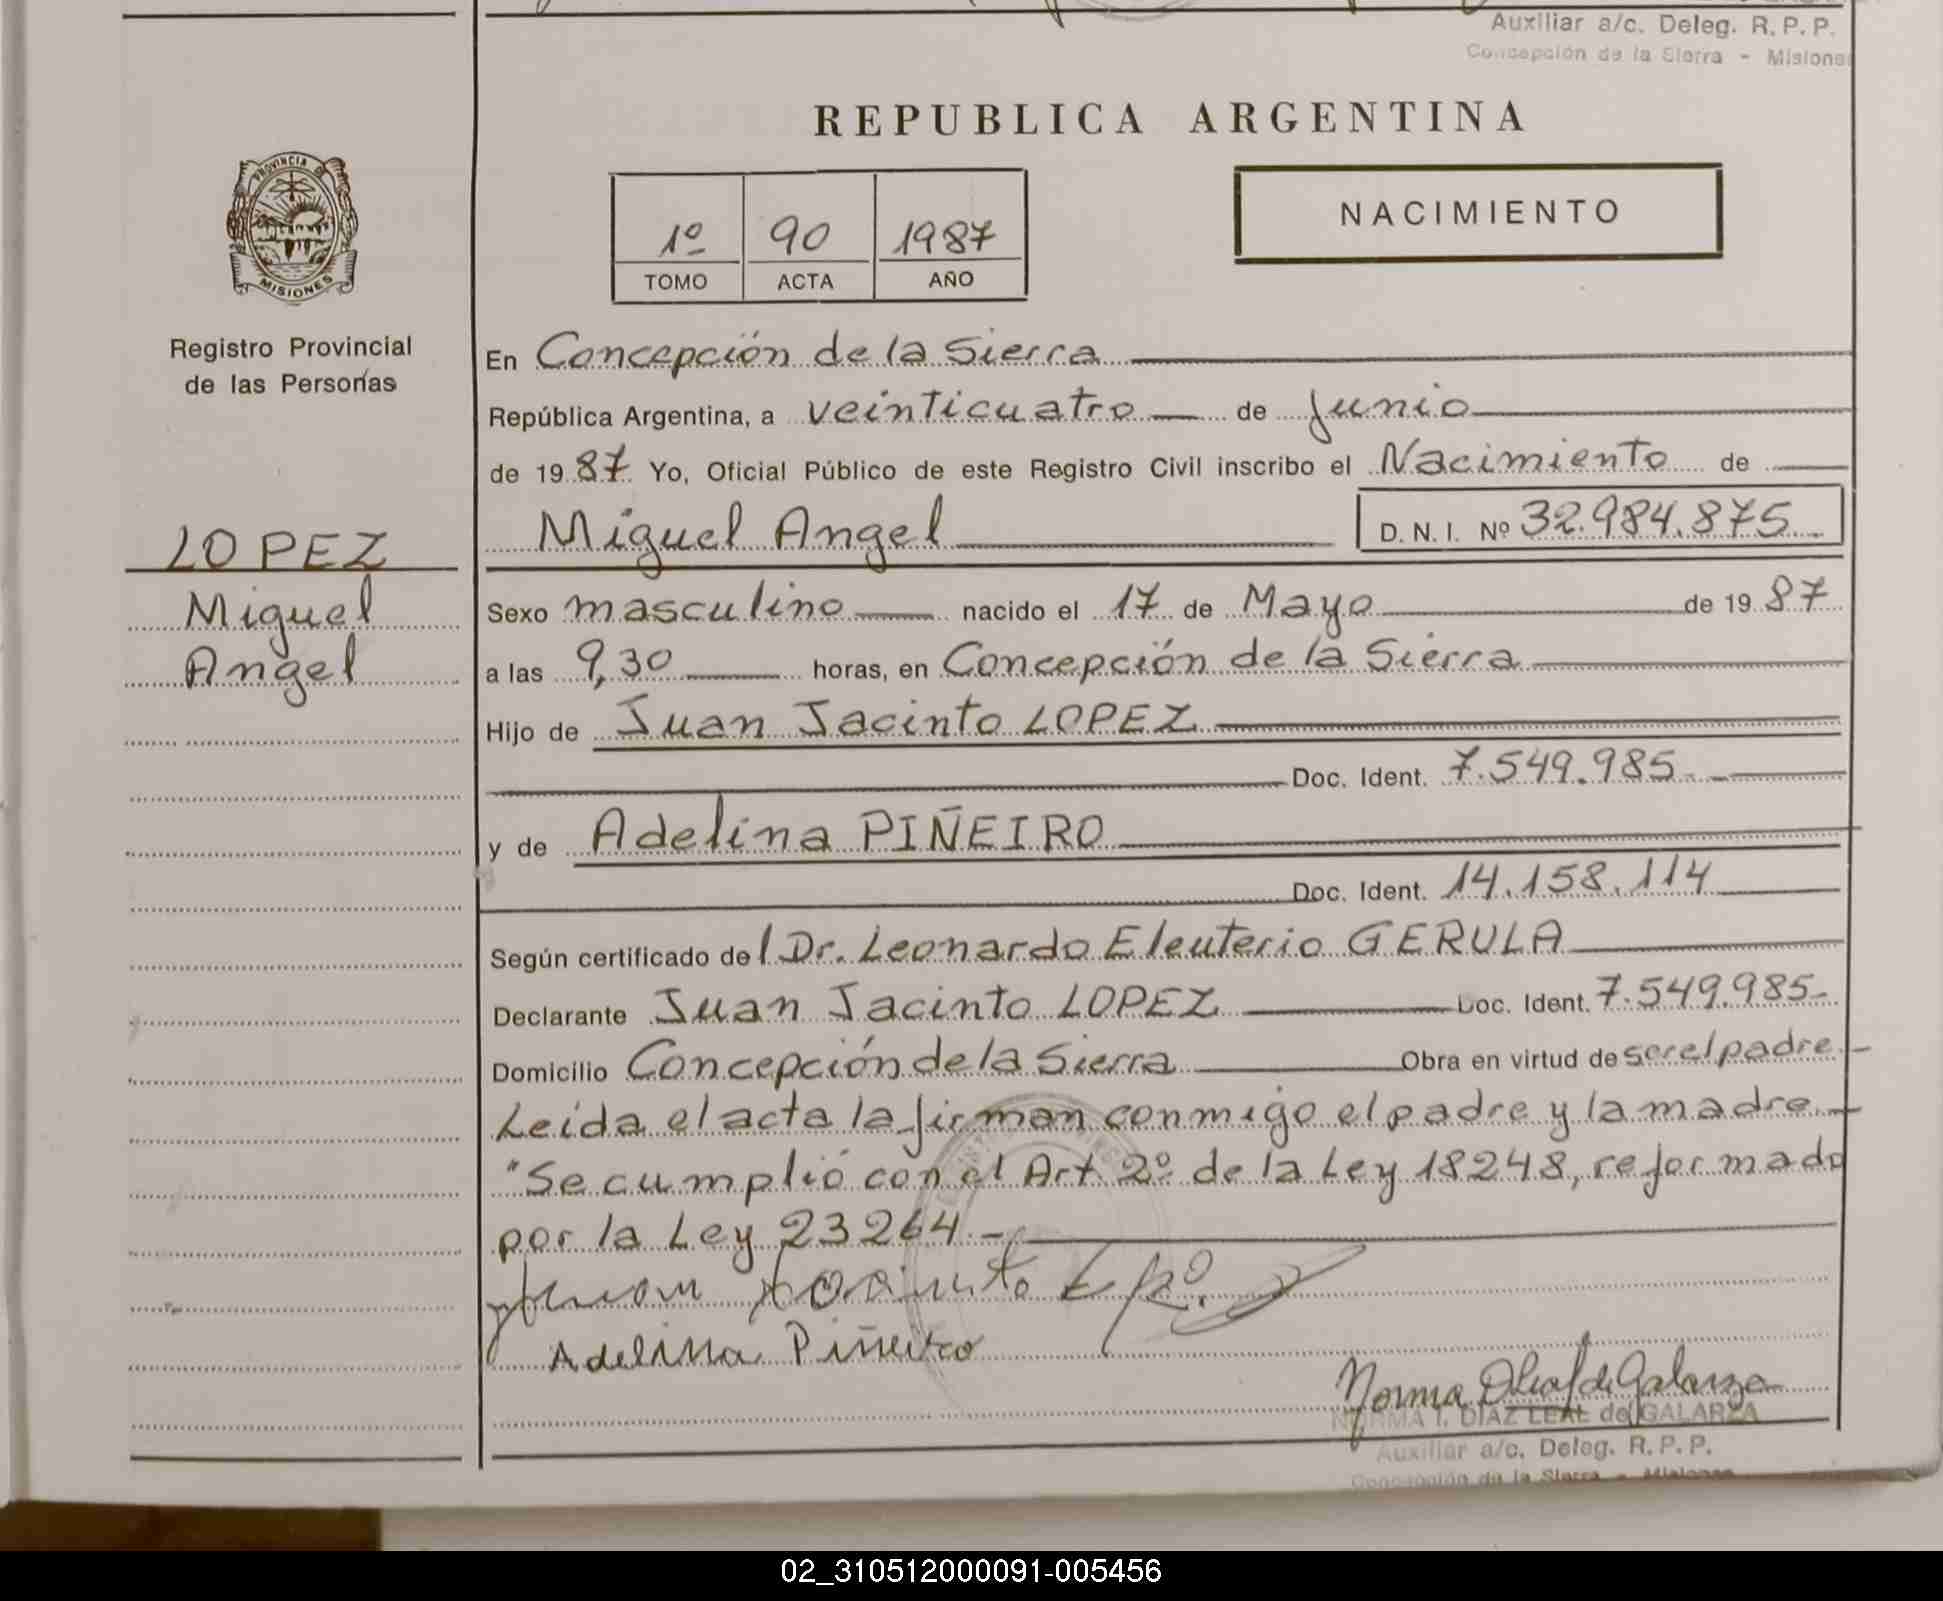 Auxiliar a/c. Deleg. R. P. P.
Concepción de la Sierra - Misiones
REPUBLICA ARGENTINA
PROVINCIA DE
MISIONES
1º 90 1987
TOMO ACTA AÑO
NACIMIENTO
Registro Provincial
de las Personas
LOPEZ
Miguel
Angel
En Concepción de la Sierra
República Argentina, a veinticuatro de Junio
de 1987 Yo, Oficial Público de este Registro Civil inscribo el Nacimiento de
Miguel Angel D. N. I. Nº 32.984.875
Sexo masculino nacido el 17 de Mayo de 1987
a las 9,30 horas, en Concepción de la Sierra
Hijo de Juan Jacinto LOPEZ
Doc. Ident. 7.549.985
y de Adelina PIÑEIRO
Doc. Ident. 14.158.114
Según certificado del Dr. Leonardo Eleuterio GERULA
Declarante Juan Jacinto LOPEZ Doc. Ident. 7.549.985-
Domicilio Concepción de la Sierra Obra en virtud de ser el padre
Leída el acta la firman conmigo el padre y la madre.-
"Se cumplió con el Art. 2º de la Ley 18248, reformado
por la Ley 23264.-
Adelina Piñeiro
NORMA I. DIAZ LEAL de GALARZA
Auxiliar a/c. Deleg. R. P. P.
Concepción de la Sierra - Misiones
02_310512000091-005456